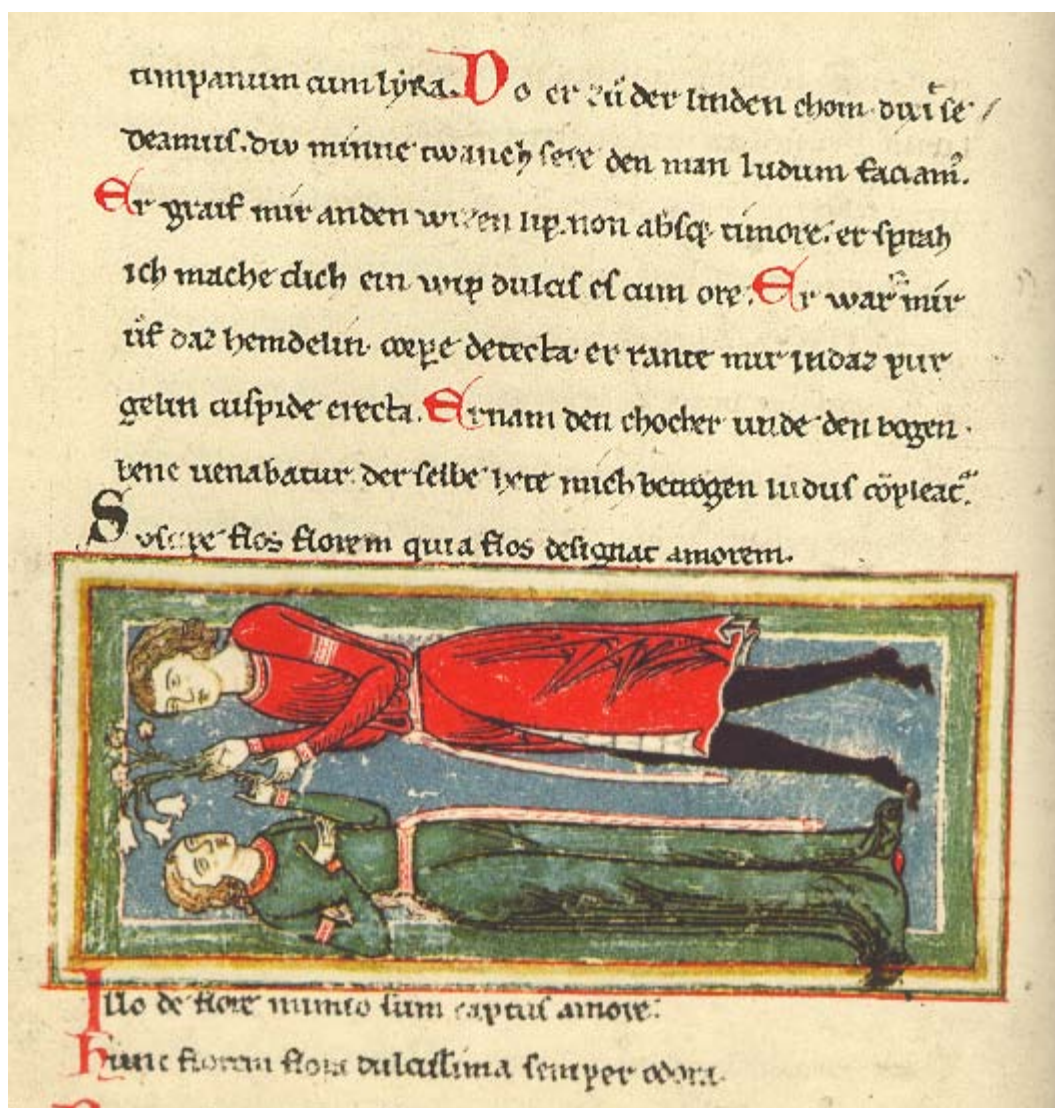 timpanum cum lyra. Do er zů der linden chom dixit se
deamus. div minne twanch sere den man ludum faciamꝰ.
Er graif mir an den wizen lip. non absqꝫ timore. er sprah
ich mache dich ein wip dulcis es cum ore. Er warf mir
ůf daz hemdelin. corpe detecta. er rante mir in daz pur
gelin cuspide erecta. Er nam den chocher unde den bogen.
bene uenabatur. der selbe hete mich betrogen ludus cōpleat̉.
Suscipe flos florem quia flos designat amorem.
Illo de flore nimio sum captus amore.
Hunc florem flora dulcissima semper odora.